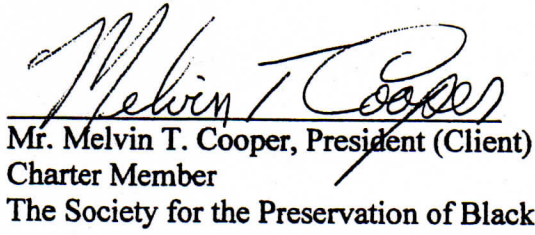 Melvin T. Cooper
Mr. Melvin T. Cooper, President (Client)
Charter Member
The Society for the Preservation of Black